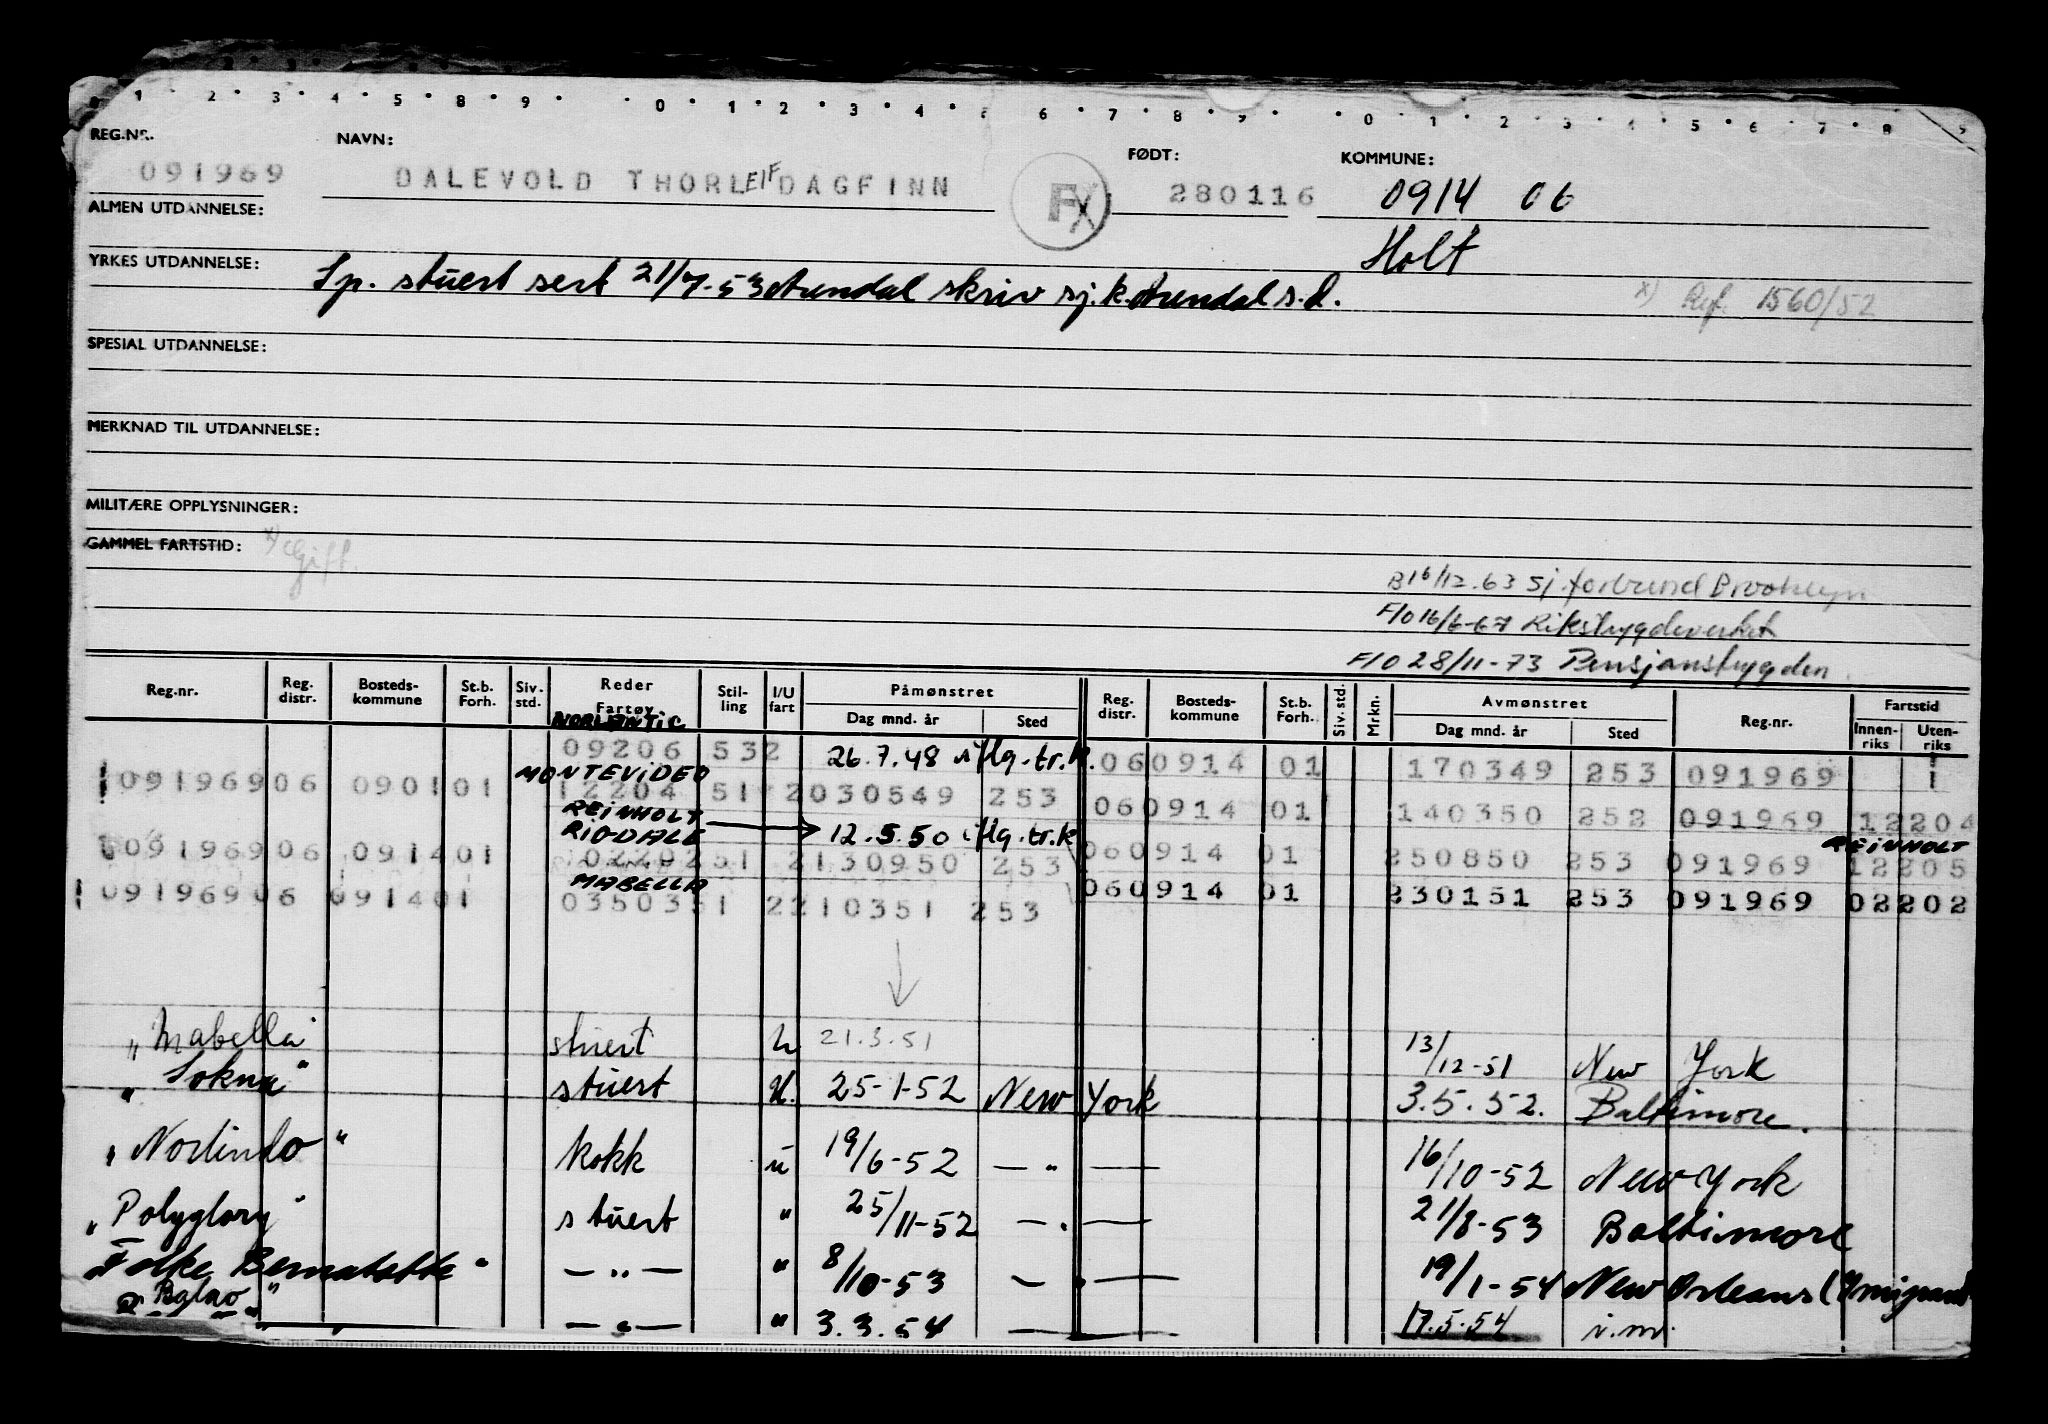 0 1 2 3 4 5 8 9 0 1 2 3 4 6 7 8 9 0 1 2 3 4 5 6 7 8 9
REG.NR. NAVN: FØDT: KOMMUNE:
091969 DALEVOLD THORLEIF DAGFINN FX 280116 0914 06
ALMEN UTDANNELSE: Holt
YRKES UTDANNELSE: Sp. stuert sert 21/7-53 Arendal skriv sj.k. Arendal s.d.
x) Ref. 1560/52
SPESIAL UTDANNELSE:
MERKNAD TIL UTDANNELSE:
MILITÆRE OPPLYSNINGER:
GAMMEL FARTSTID: x) Gift.
B 16/12.63 Sj.forbund Brooklyn
F/O 16/6-67 Rikstrygdeverket
F/O 28/11-73 Pensjonstrygden
Reg.nr. Reg. distr. Bosteds- kommune St.b. Forh. Siv. std. Reder Fartøy Stil- ling I/U fart Påmønstret Dag mnd. år Sted Reg. distr. Bosteds- kommune St.b. Forh. Siv. std. Mrkn. Avmønstret Dag mnd. år Sted Reg.nr. Fartstid Innen- riks Uten- riks
NORLANTIC
09206 532 26.7.48 iflg.tr.k. 060914 01 170349 253 091969
MONTEVIDEO
09196906 090101 12204 51 2030549 253 060914 01 140350 252 091969 12204
REINHOLT
RIODALE 12.5.50 iflg.tr.k REINHOLT
09196906 091401 02202 51 2130950 253 060914 01 250850 253 091969 12205
MABELLA
09196906 091401 03503 51 2210351 253 060914 01 230151 253 091969 02202
"Mabella" stuert U 21.3.51 13/12-51 New York
"Sokna" stuert U. 25-1-52 New York 3.5.52. Baltimore.
"Norlindo" kokk u 19/6-52 — " — 16/10-52 New York
"Polyglory" stuert " 25/11-52 — " — 21/8-53 Baltimore
"Folke Bernadotte" — " — " 8/10-53 — " — 19/1-54 New Orleans
"Balao" — " — " 3.3.54 — — 17.5.54 i.m.